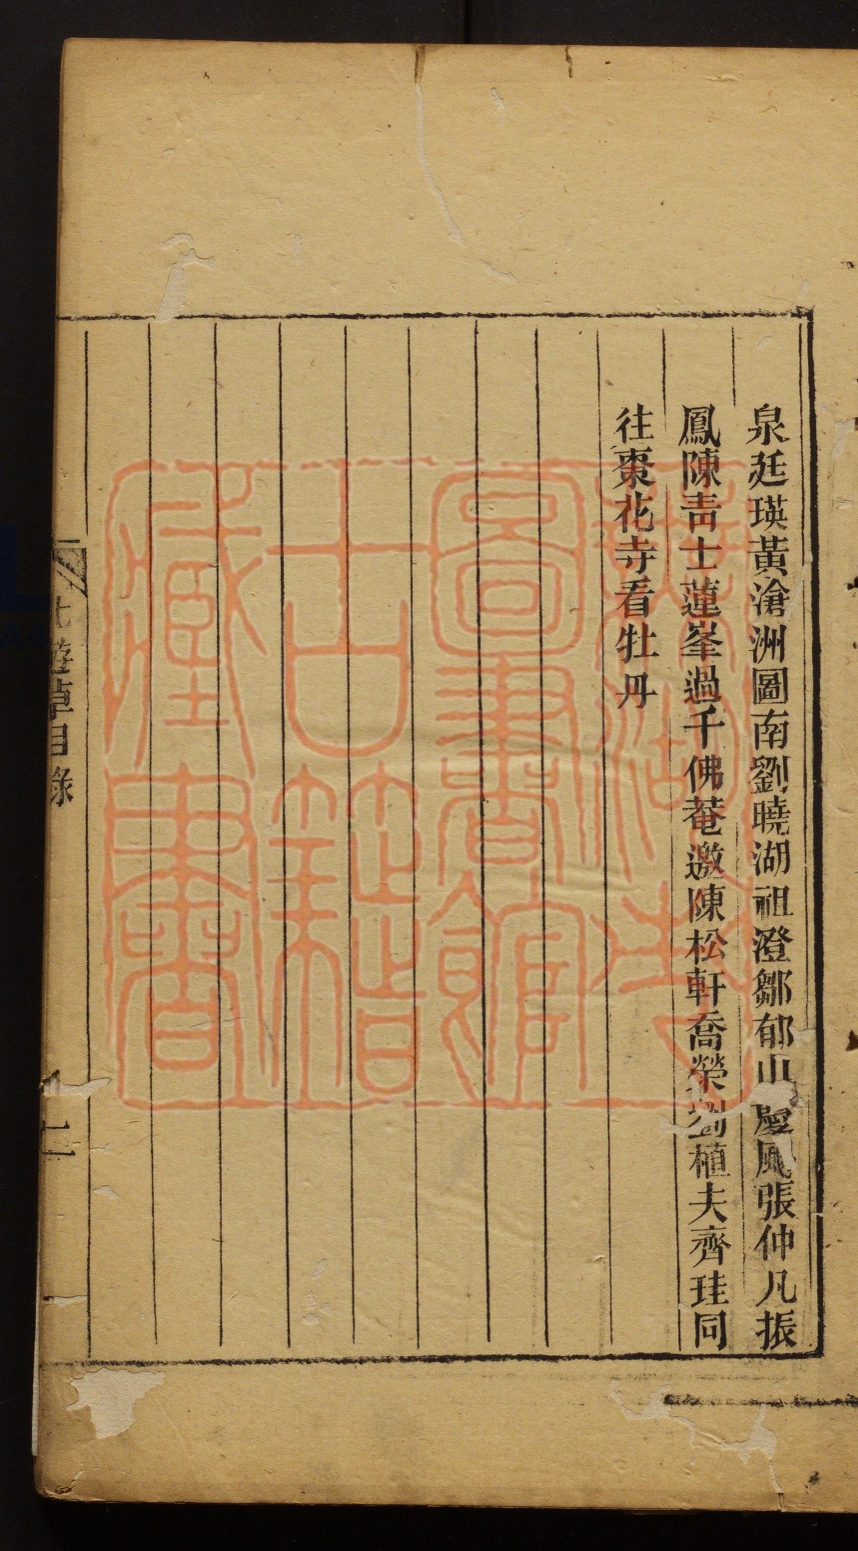 泉廷瑛黃滄洲圖南劉曉湖祖澄鄒郁山風張仲凡振
鳳陳靑士蓮峯過千佛菴邀陳松軒喬榮劉植夫齊珪同
往棗花寺看牡丹
北遊草目錄
二
蕪湖市
圖書館
古籍
藏書